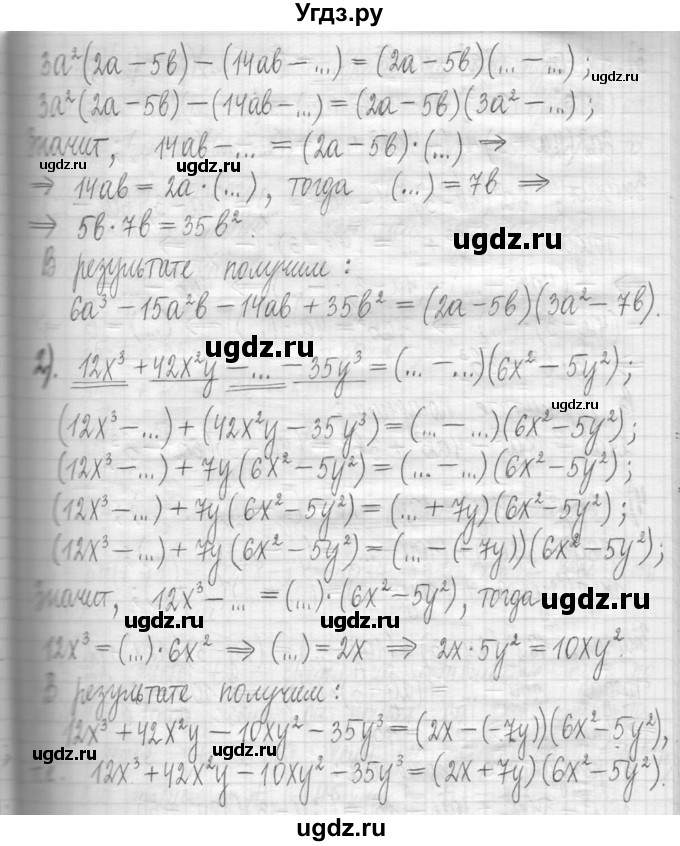 Угдз.ру
3a²(2a – 5в) – (14aв – ...) = (2a – 5в)(... – ...);
3a²(2a – 5в) – (14aв – ...) = (2a – 5в)(3a² – ...);
Значит, 14aв – ... = (2a – 5в)·(...) ⇒
⇒ 14aв = 2a·(...), тогда (...) = 7в ⇒
⇒ 5в·7в = 35в².
В результате получим:
6a³ – 15a²в – 14aв + 35в² = (2a – 5в)(3a² – 7в).
2). 12x³ + 42x²y – ... – 35y³ = (... – ...)(6x² – 5y²);
(12x³ – ...) + (42x²y – 35y³) = (... – ...)(6x² – 5y²);
(12x³ – ...) + 7y(6x² – 5y²) = (... – ...)(6x² – 5y²);
(12x³ – ...) + 7y(6x² – 5y²) = (... + 7y)(6x² – 5y²);
(12x³ – ...) + 7y(6x² – 5y²) = (... – (–7y))(6x² – 5y²);
Значит, 12x³ – ... = (...)·(6x² – 5y²), тогда
12x³ = (...)·6x² ⇒ (...) = 2x ⇒ 2x·5y² = 10xy².
В результате получим:
12x³ + 42x²y – 10xy² – 35y³ = (2x – (–7y))(6x² – 5y²),
12x³ + 42x²y – 10xy² – 35y³ = (2x + 7y)(6x² – 5y²).
ugdz.ru